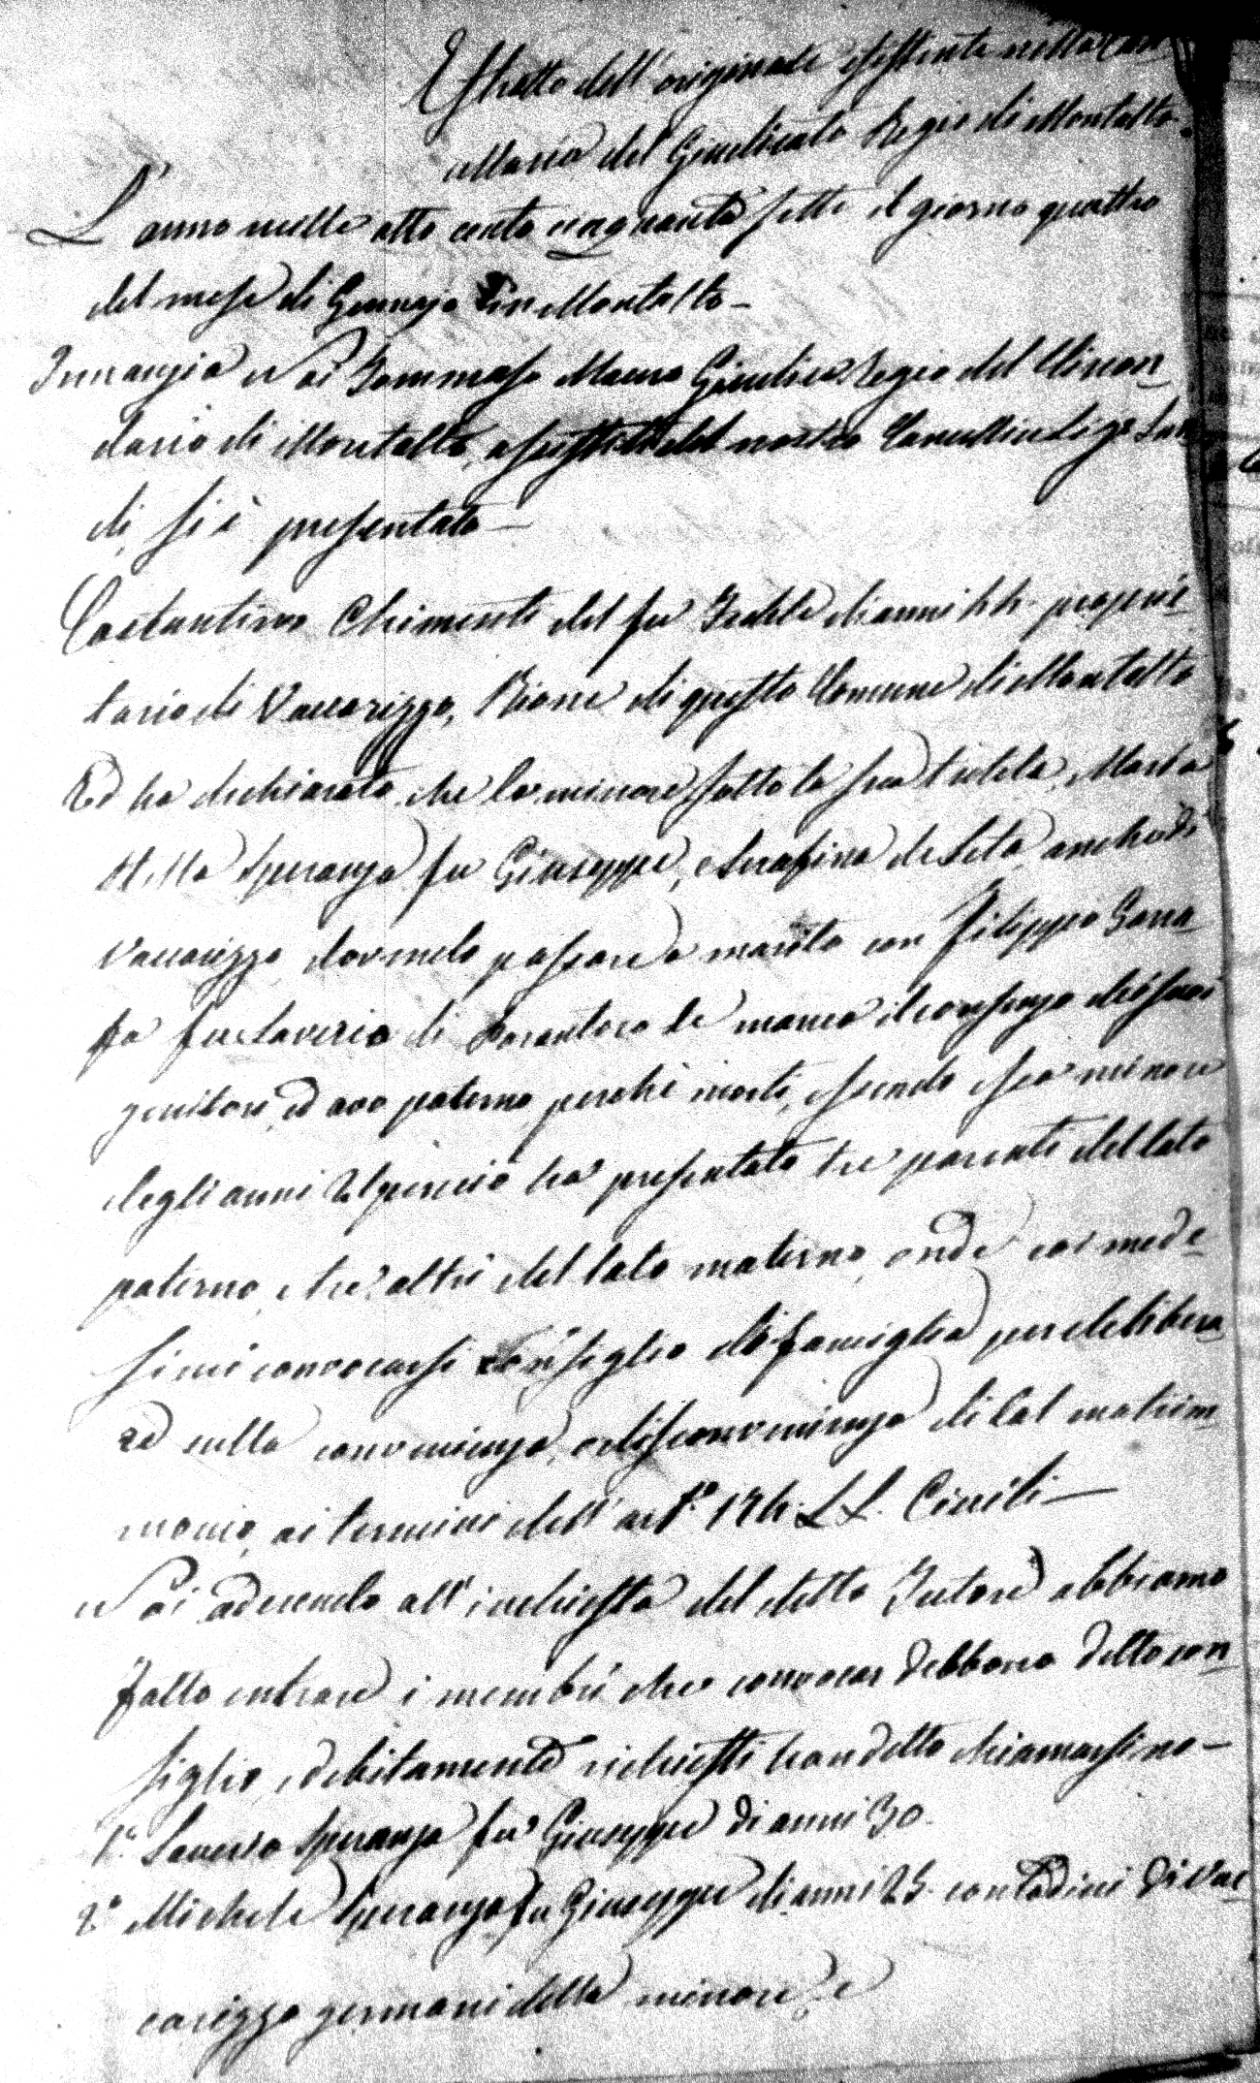 Estratto dell'originale esistente nella Can
cellaria del Giudicato Regio di Montalto.
L'anno mille otto cento cinquanta sette il giorno quattro
del mese di Gennajo in Montalto –
Innanzi a Noi Tommaso Mauro Giudice Regio del Circon
dario di Montalto, assistito dal nostro Cancelliere
di, si è presentato –
Costantino Chimenti del fu Fedele di anni 44. proprie
tario di Vaccarizzo, Rione di questo Comune di Montalto
Ed ha dichiarato che la minore sotto la sua tutela, Maria
Speranza fu Giuseppe, e Serafina de Seta, anche di
Vaccarizzo dovendo passare a marito con Filippo
fu Saverio di le manca il consenso dei suoi
genitori, ed avo paterno perchè morti, essendo essa minore
degli anni 21 perciò ha presentato tre parenti del lato
paterno, e tre altri del lato materno, onde coi mede
simi convocarsi consiglio di famiglia per delibera
re sulla convenienza, o disconvenienza di tal matrim
monio, ai termini dell'art.o 174. LL. Civili –
Noi aderendo all'inchiesta del detto Tutore abbiamo
fatto entrare i membri che convocar debbono detto con
siglio, e debitamente richiesti han detto chiamarsi ino –
1.o Saverio Speranza fu Giuseppe di anni 30.
2.o Michele Speranza fu Giuseppe di anni 25. contadini di Vac
carizzo germani della minore, e